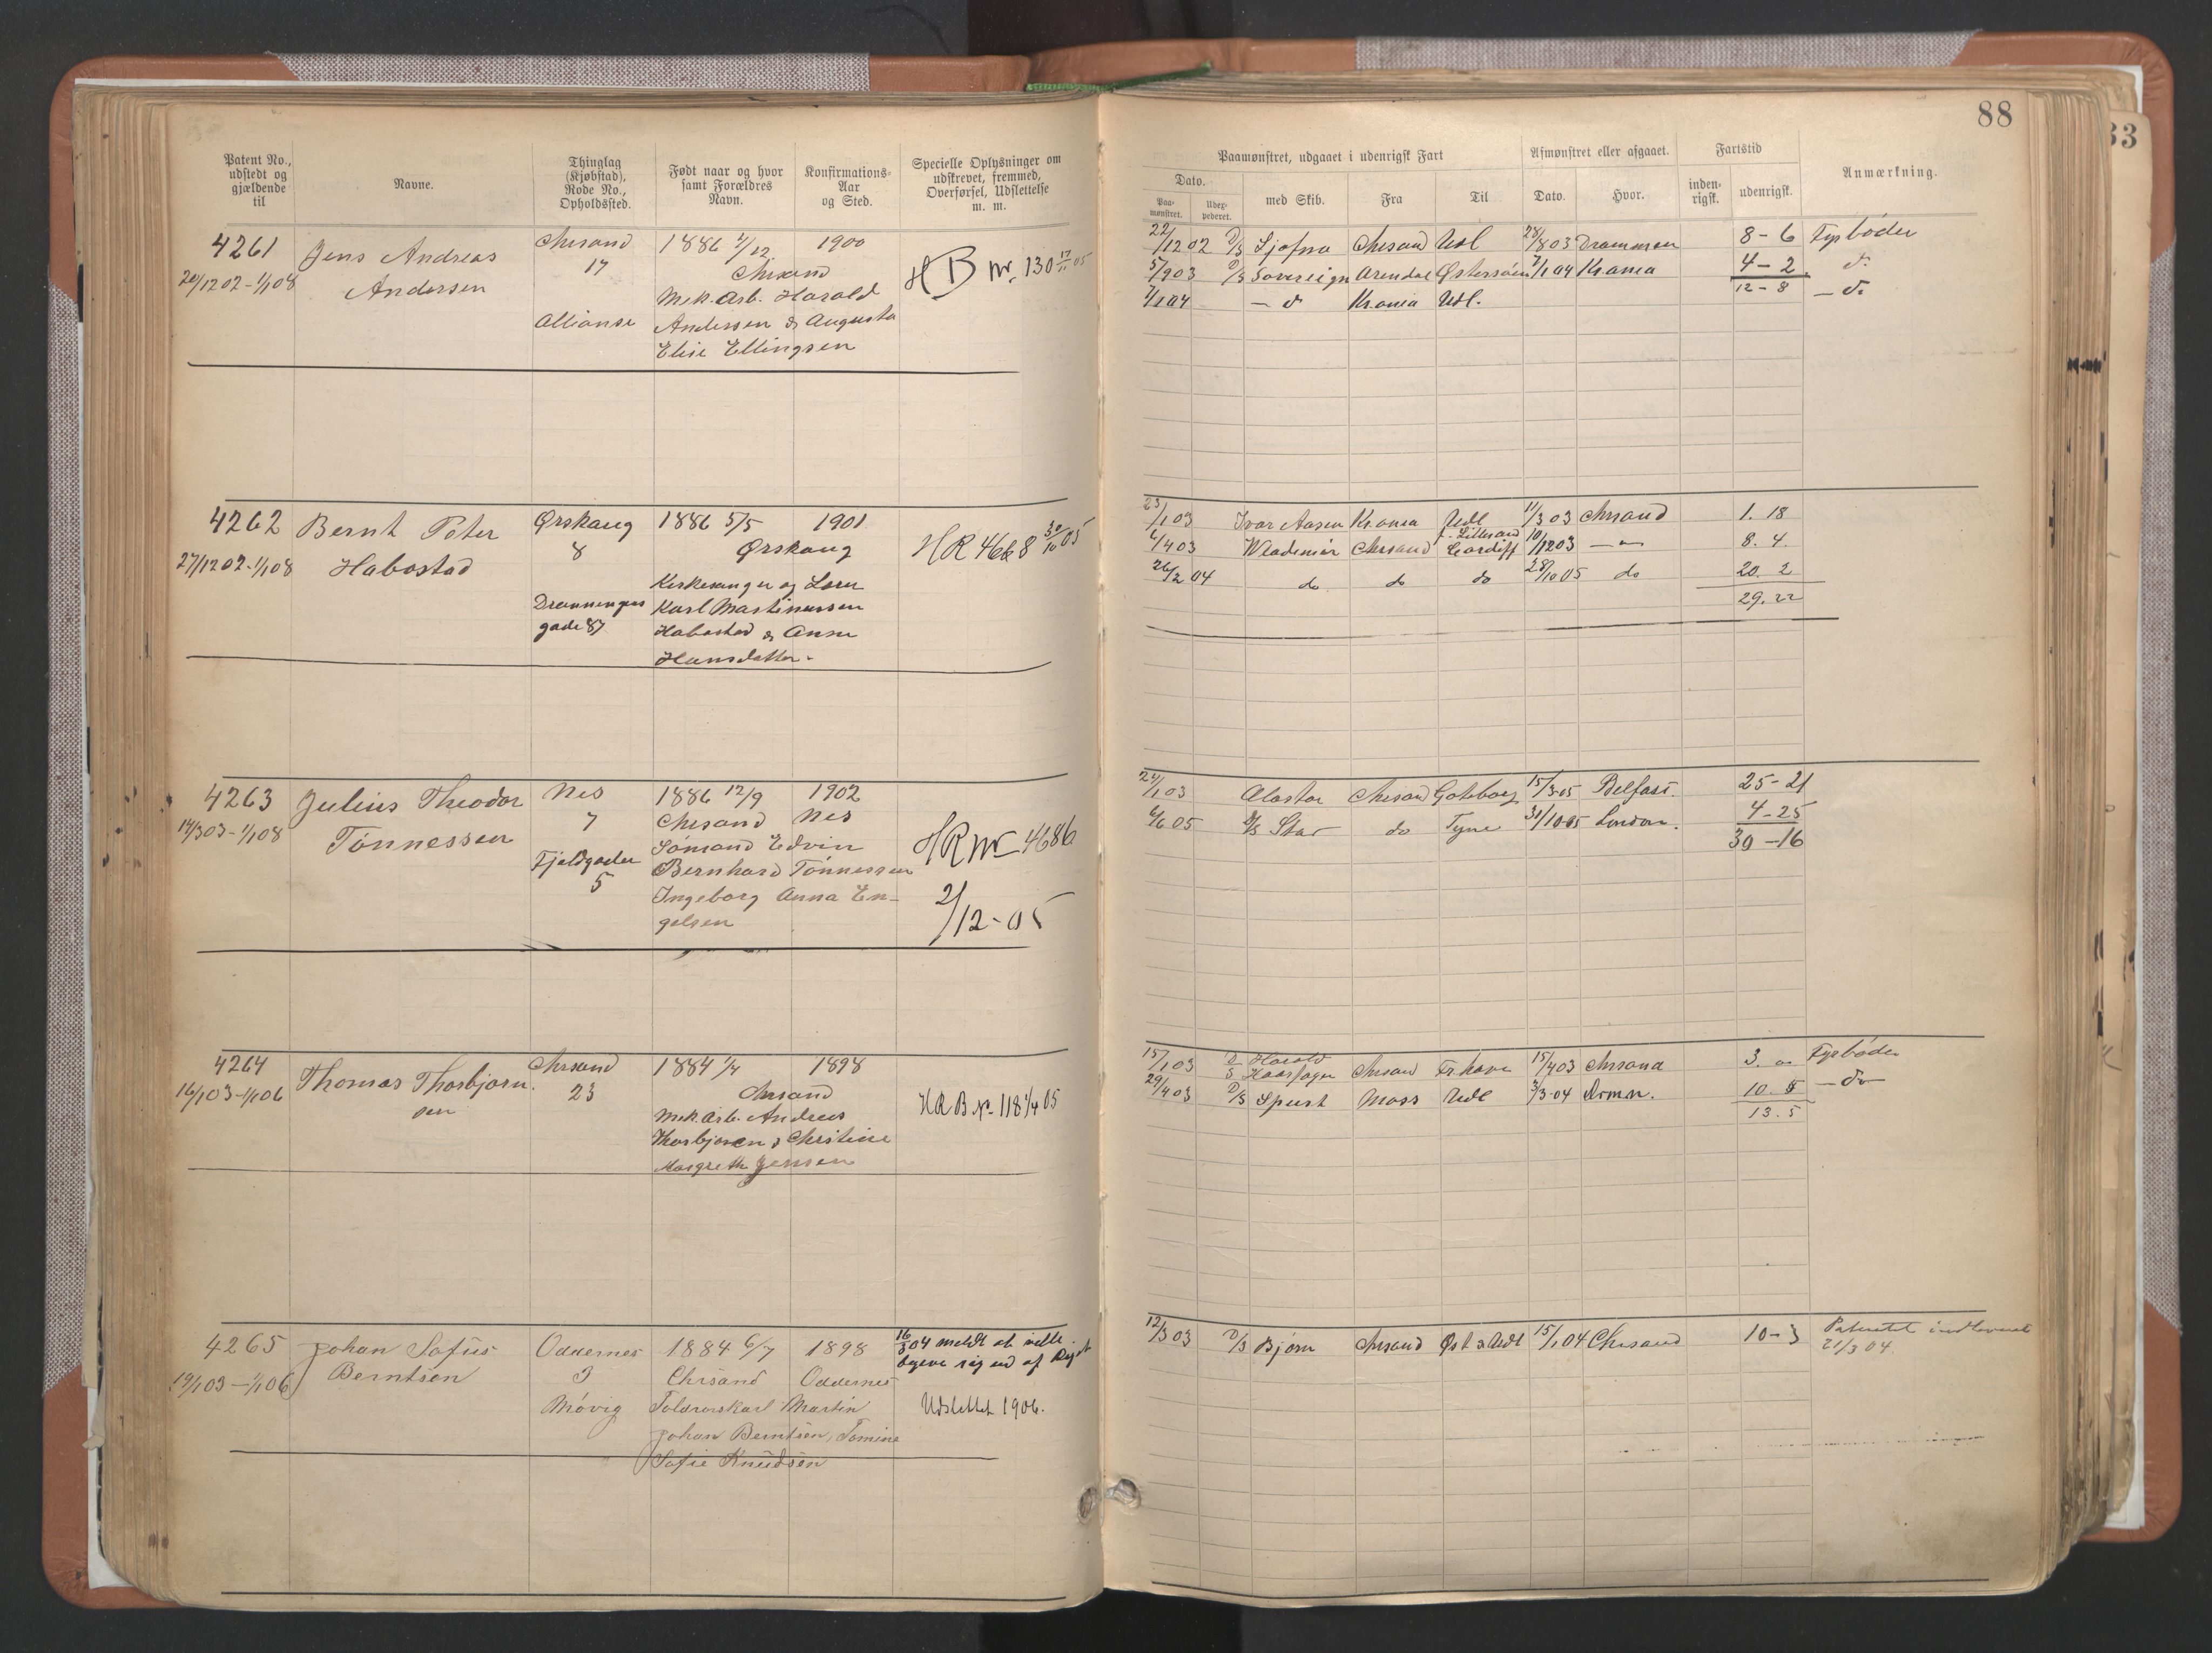 88
33
Patent No., udstedt og gjældende til
Navne.
Thinglag (Kjøbstad), Rode No., Opholdssted.
Født naar og hvor samt Forældres Navn.
Konfirmations-Aar og Sted.
Specielle Oplysninger om udskrevet, fremmed, Overførsel, Udslettelse m. m.
Paamønstret, udgaaet i udenrigsk Fart
Afmønstret eller afgaaet.
Fartstid
Anmærkning.
Dato.
Paa-mønstret.
Udex-pederet.
med Skib.
Fra
Til
Dato.
Hvor.
inden-rigsk.
udenrigsk.
4261
20/12 02 - 1/1 08
Jens Andreas
Andersen
Chrsand
17
Allianse
1886 4/12 1900
Chrsand
Mek. Arb. Harald
Andersen & Augusta
Elise Ellingsen
HB nr. 130 17/11 05
22/12 02 D/S Sjofna Chrsand Udl 28/8 03 Drammen 8-6 Fyrbøder
5/9 03 D/S Sovereign Arendal Østersøen 7/1 04 Krania 4-2 do
12-8
7/1 04 - do Krania Udl. - do
4262
27/12 02 - 1/1 08
Bernt Peter
Habostad
Ørskaug
8
Dronningens
gade 87
1886 5/5 1901
Ørskaug
Kirkesanger og Lærer
Karl Martinussen
Habostad & Anne
Hansdatter.
HR 4668 30/10 05
23/1 03 Ivar Aasen Krania Udl 11/3 03 Chrsand 1. 18
6/4 03 Wlademir Chrsand f. Lillesand Cardiff 10/12 03 - " - 8. 4.
26/2 04 do do do 28/10 05 do 20. 2
29. 22
4263
14/3 03 - 1/1 08
Julius Theodor
Tønnessen
Nes
7
Fjeldgaden
5
1886 12/9 1902
Chrsand Nes
Sømand Edvin
Bernhard Tønnessen
Ingeborg Anna En-
gelsen
HR nr 4686
2/12 - 05
24/1 03 Alastor Chrsand Goteborg 15/3 05 Belfast. 25-21
6/6 05 S/S Star do Tyne 31/10 05 London. 4-25
30-16
4264
16/1 03 - 1/1 06
Thomas Thorbjørn.
sen
Chrsand
23
1884 1/4 1898
Chrsand
Mek. Arb. Andreas
Thorbjørnsen & Christine
Margrethe Jensen
HRB No. 118 1/4 05
15/1 03 D/S Harald Haarfager Chrsand Fr.havn 15/4 03 Chrsand 3. " Fyrbøder
29/4 03 D/S Spurt Moss Udl 3/3 04 Drmn. 10. 5 - do -
13. 5
4265
19/1 03 - 1/1 06
Johan Sofus
Berntsen
Oddernes
3
Møvig
1884 6/7 1898
Chrsand Oddernes
Toldrorskarl Martin
Johan Berntsen, Tomine
Sofie Knudsen
16/3 04 meldt at ville
begive sig ud af Riget
Udslettet 1906.
12/3 03 D/S Bjørn Chrsand Øst & Udl 15/1 04 Chrsand 10-3 Patentet indleveret
21/3 04.